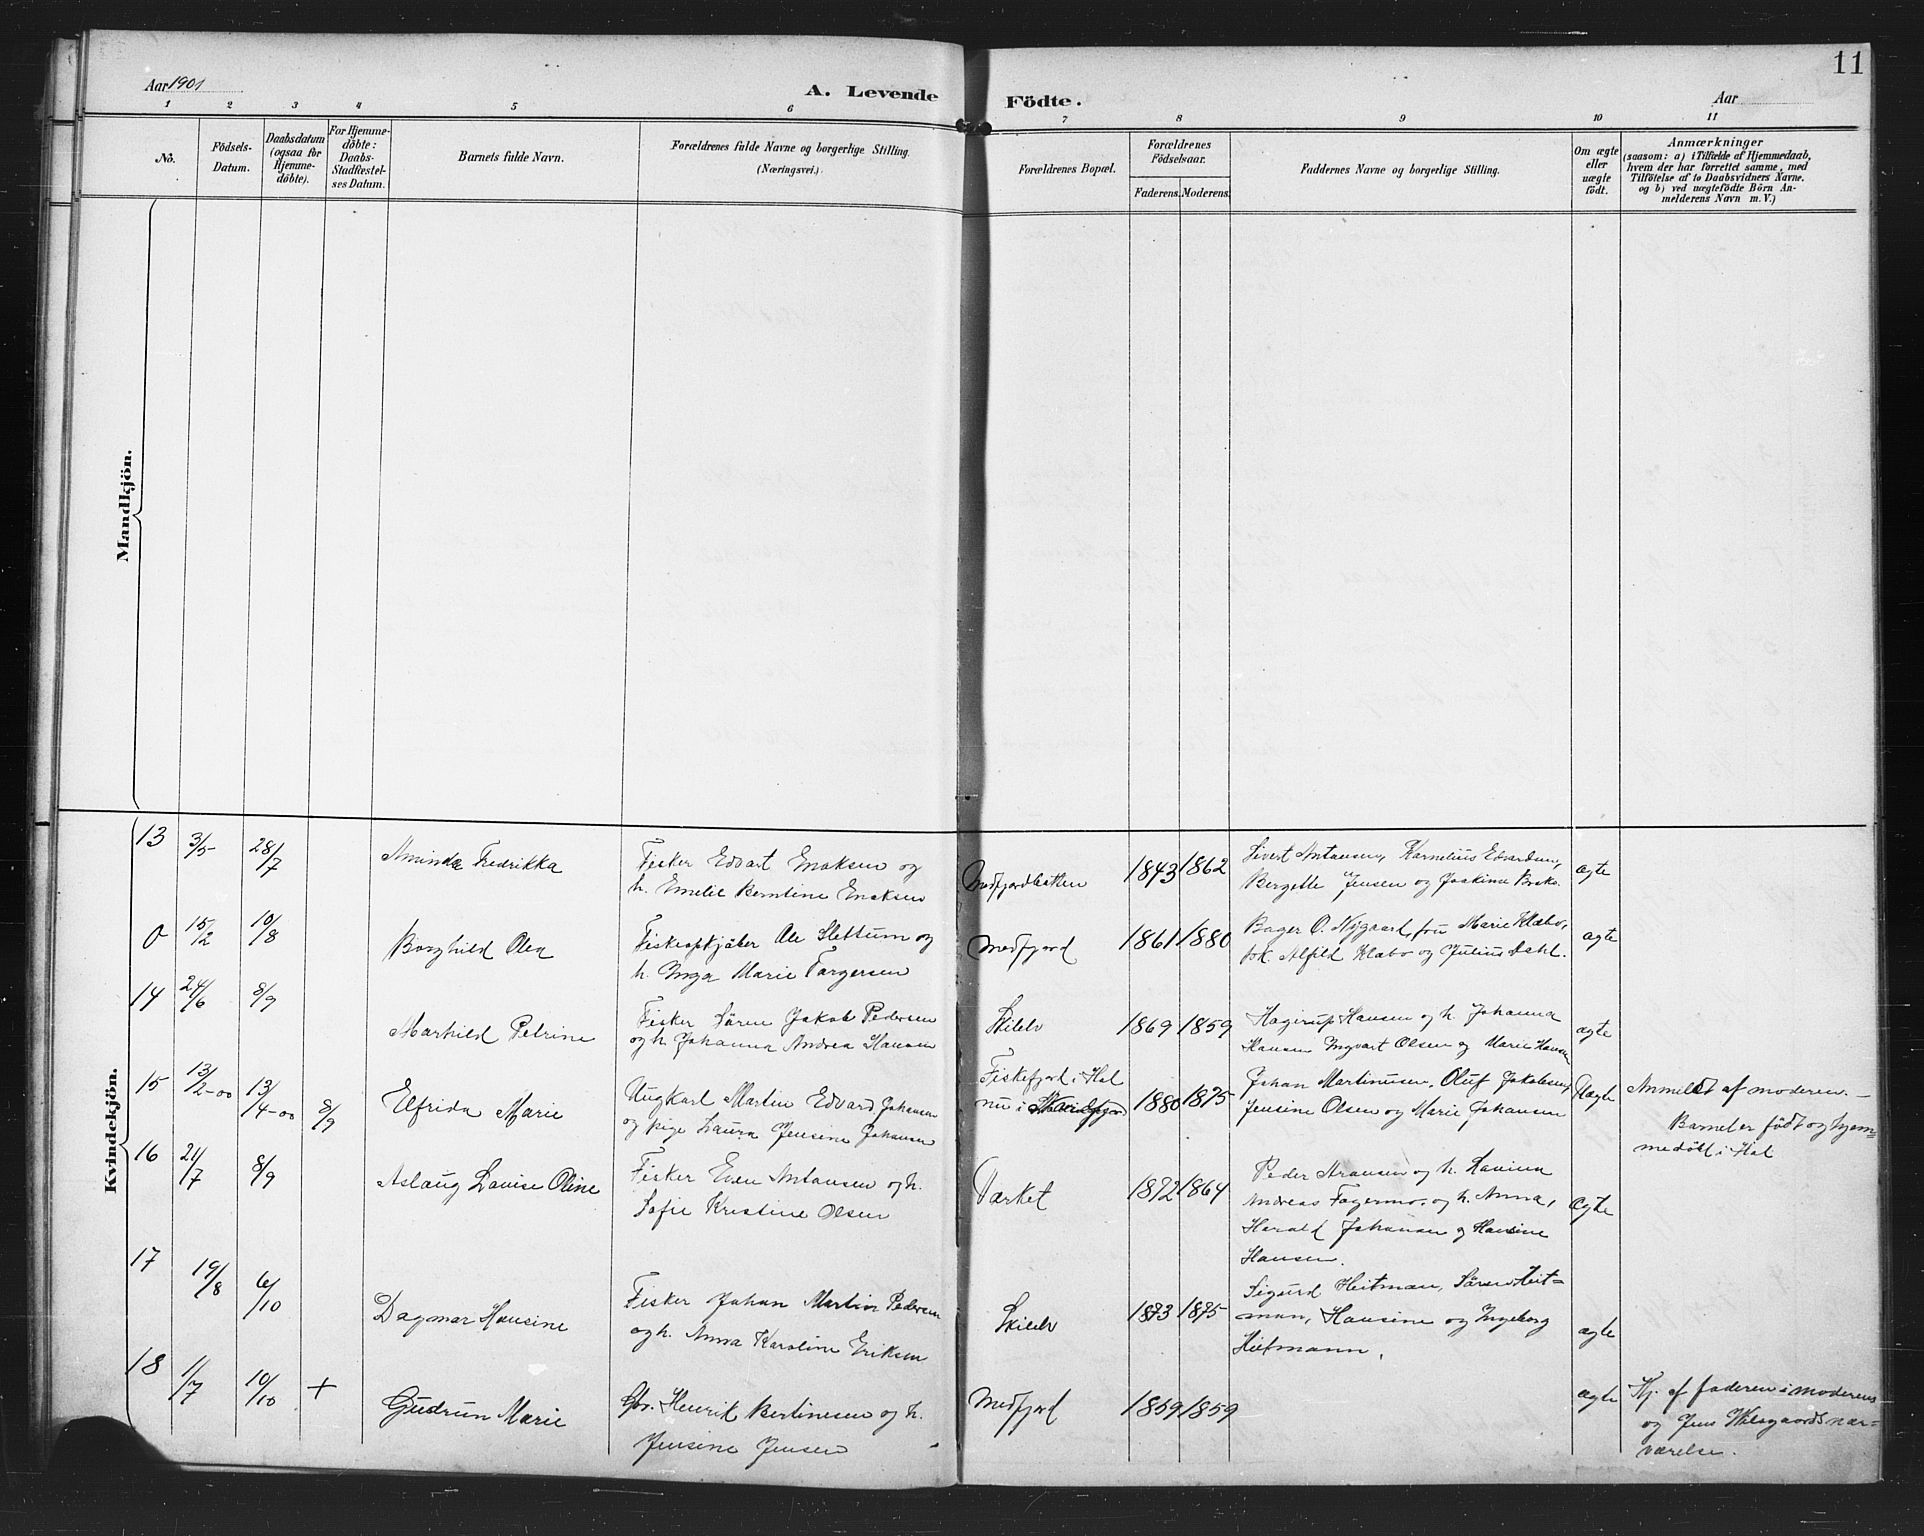 11
Aar 1901
A. Levende
Födte.
Aar
1 2 3 4 5 6 7 8 9 10 11
No.
Födsels-
Datum.
Daabsdatum
(ogsaa for
Hjemme-
döbte).
For Hjemme-
döbte:
Daabs-
Stadfæstel-
ses Datum.
Barnets fulde Navn.
Forældrenes fulde Navne og borgerlige Stilling.
(Næringsvei.)
Forældrenes Bopæl.
Forældrenes
Födselsaar.
Faderens. Moderens.
Faddernes Navne og borgerlige Stilling.
Om ægte
eller
uægte
födt.
Anmærkninger
(saasom: a) i Tilfælde af Hjemmedaab,
hvem der har forrettet samme, med
Tilföielse af to Daabsvidners Navne.
og b) ved uægtefödte Börn An-
melderens Navn m. V.)
Mandkjön.
Kvindekjön.
13 3/5 28/7
Aminda Fredrikka
Fisker Edvart Enoksen og
h. Emelie Berntine Enoksen
Medfjordbotten
1843 1862
Sivert Antonsen, Kornelius Edvardsen,
Bergette Jensen og Joakima
ægte
0 15/2 10/8
Borghild Olea
Fiskeopkjøber Ole Slettum og
h. Inga Marie Torgersen
Medfjord
1861 1880
Bager O. Nygaard, fru Marie Klæbo,
frk. Alfild Klæbo og Julius Dahl.
ægte
14 24/6 8/9
Marhild Petrine
Fisker Sören Jakob Pedersen
og h. Johanna Andrea Hansen
Skilelv
1869 1859
Hagerup Hansen og h. Johanna
Hansen Ingvart Olsen og Marie Hansen
ægte
15 13/2-00 13/4-00 8/9
Elfrida Marie
Ungkarl Martin Edvard Johansen
og pige Laura Jensine Johansen
Fiskefjord i Hol
nu i
1880 1875
Johan Martinusen, Oluf Jakobsen,
Jensine Olsen og Marie Johansen
Uægte
Anmeldt af moderen. —
Barnet er födt og hjem=
medöbt i Hol
16 21/7 8/9
Aslaug Lovise Oline
Fisker Even Antonsen og h.
Sofie Kristine Olsen
Værket
1872 1864
Peder Aronsen og h. Lovina
Andreas Fagermo, og h. Anna,
Harald Johansen og Hansine
Hansen.
Ægte
17 19/8 6/10
Dagmar Hansine
Fisker Johan Martin Pedersen
og h. Anna Karoline Eriksen
Skilelv
1873 1875
Sigurd Heitman, Sören Heit=
man, Hansine og Ingeborg
Heitmann.
ægte
18 1/7 10/10 +
Gudrun Marie
Gbr. Henrik Bertinesen og h.
Jensine Jensen
Medfjord
1859 1859
ægte
Hj. af faderen i moderens
og Jens nær=
værelse.